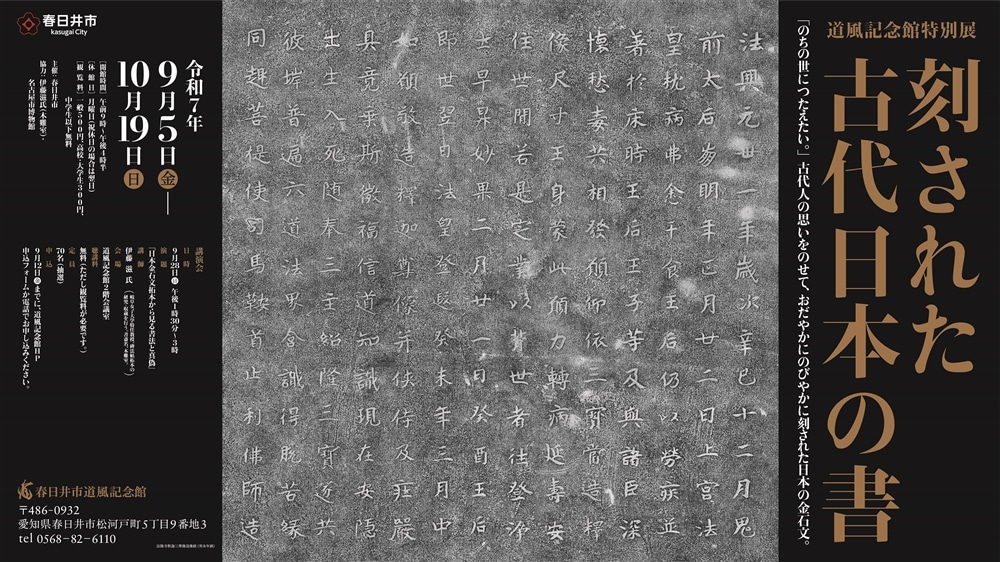 道風記念館特別展
刻された
古代日本の書
「のちの世につたえたい。」古代人の思いをのせて、おだやかにのびやかに刻された日本の金石文。
法興元丗一年歳次辛巳十二月鬼
前太后崩明年正月廿二日上宮法
皇枕病弗悆干食王后仍以勞疾並
著於床時王后王子等及與諸臣深
懐愁毒共相發願仰依三寶當造釋
像尺寸王身蒙此願力轉病延壽安
住世間若是定業以背世者往登浄
土早昇妙果二月廿一日癸酉王后
即世翌日法皇登遐癸未年三月中
如願敬造釋迦尊像并侠侍及荘嚴
具竟乗斯微福信道知識現在安隠
出生入死随奉三主紹隆三寶遂共
彼岸普遍六道法界含識得脱苦縁
同趣菩提使司馬鞍首止利佛師造
春日井市
kasugai City
令和7年
9月5日金―
10月19日日
[開館時間]午前9時~午後4時半
[休館日]月曜日(祝休日の場合は翌日)
[観覧料]一般500円、高校・大学生300円、
中学生以下無料
主催:春日井市
協力:伊藤滋氏(木雞室)・
名古屋市博物館
講演会
日時
9月28日(日)午後1時30分~3時
演題
「日本金石文拓本から見る書法と真偽」
講師
伊藤滋氏
会場
道風記念館2階会議室
聴講料
無料(ただし観覧料が必要です。)
定員
70名(抽選)
申込
9月12日(金)までに、道風記念館HP
申込フォームか電話でお申し込みください。
春日井市道風記念館
〒486-0932
愛知県春日井市松河戸町5丁目9番地3
tel 0568-82-6110